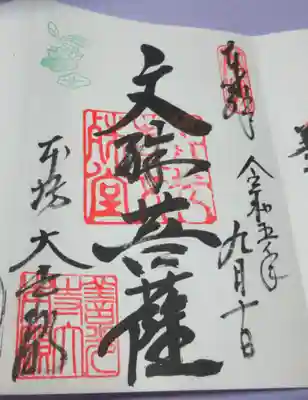 奉拝
令和五年
九月十日
文殊菩薩
本坊 大勧進